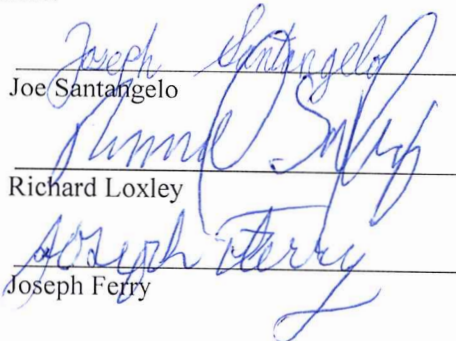 Joseph Santangelo
Joe Santangelo
Richard Loxley
Joseph Ferry
Joseph Ferry